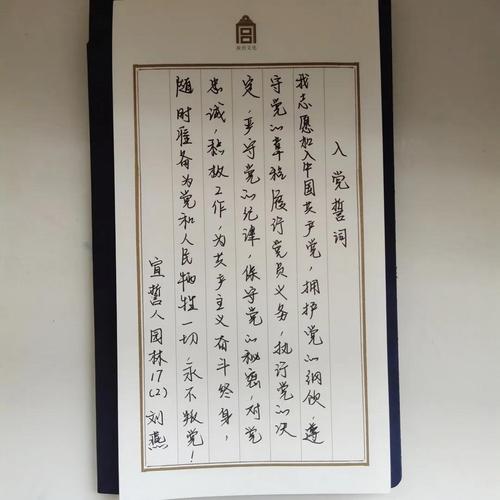 入党誓词
我志愿加入中国共产党，拥护党的纲领，遵
守党的章程，履行党员义务，执行党的决
定，严守党的纪律，保守党的秘密，对党
忠诚，积极工作，为共产主义奋斗终身，
随时准备为党和人民牺牲一切，永不叛党！
宣誓人园林17(2)刘燕